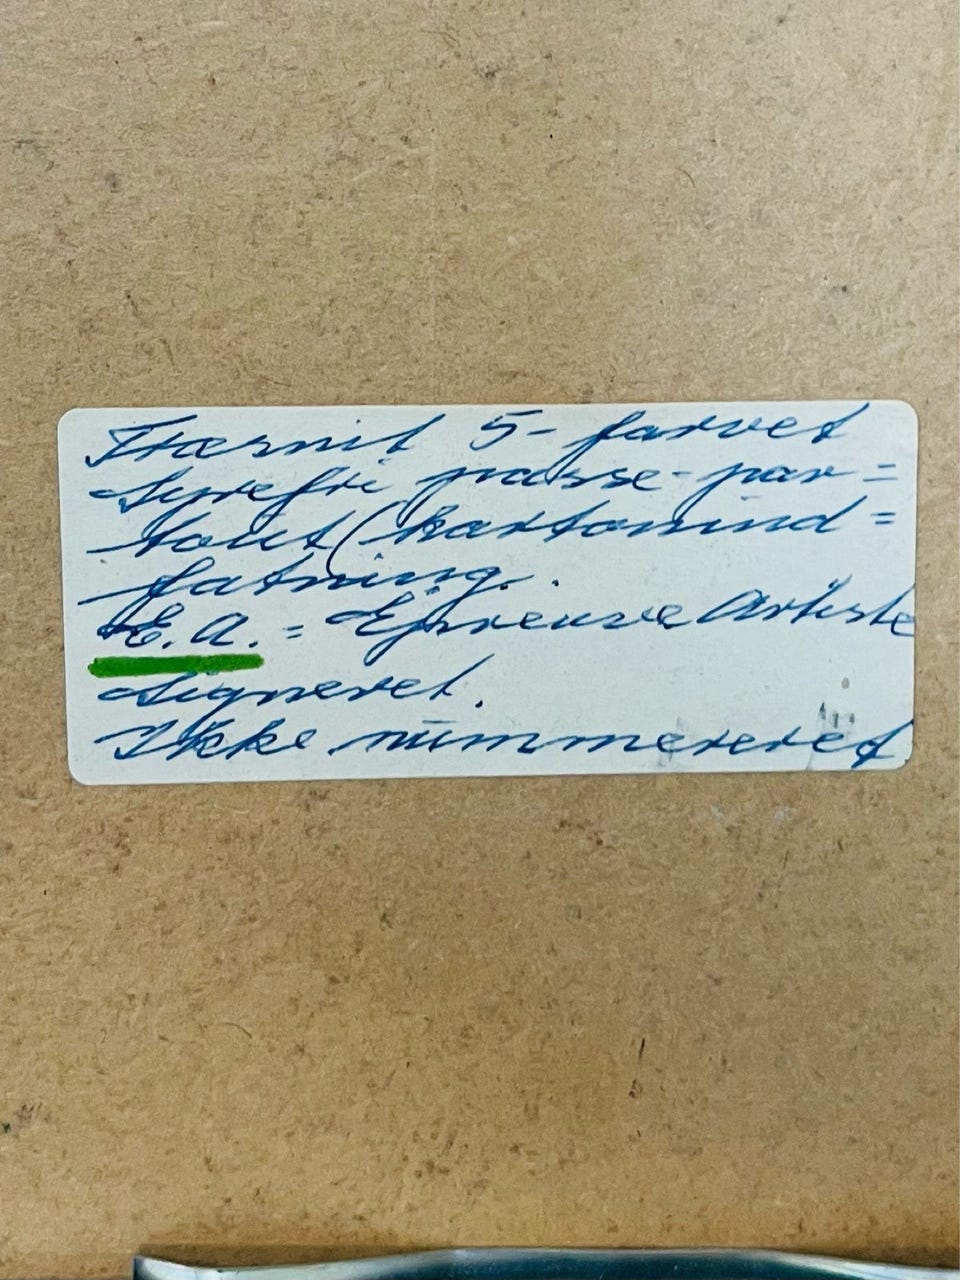 Træsnit 5-farvet
Syrefri passe-par=
tout (kartonind=
fatning.
E.A. = Epreuve Artiste
Signeret.
Ikke nummereret